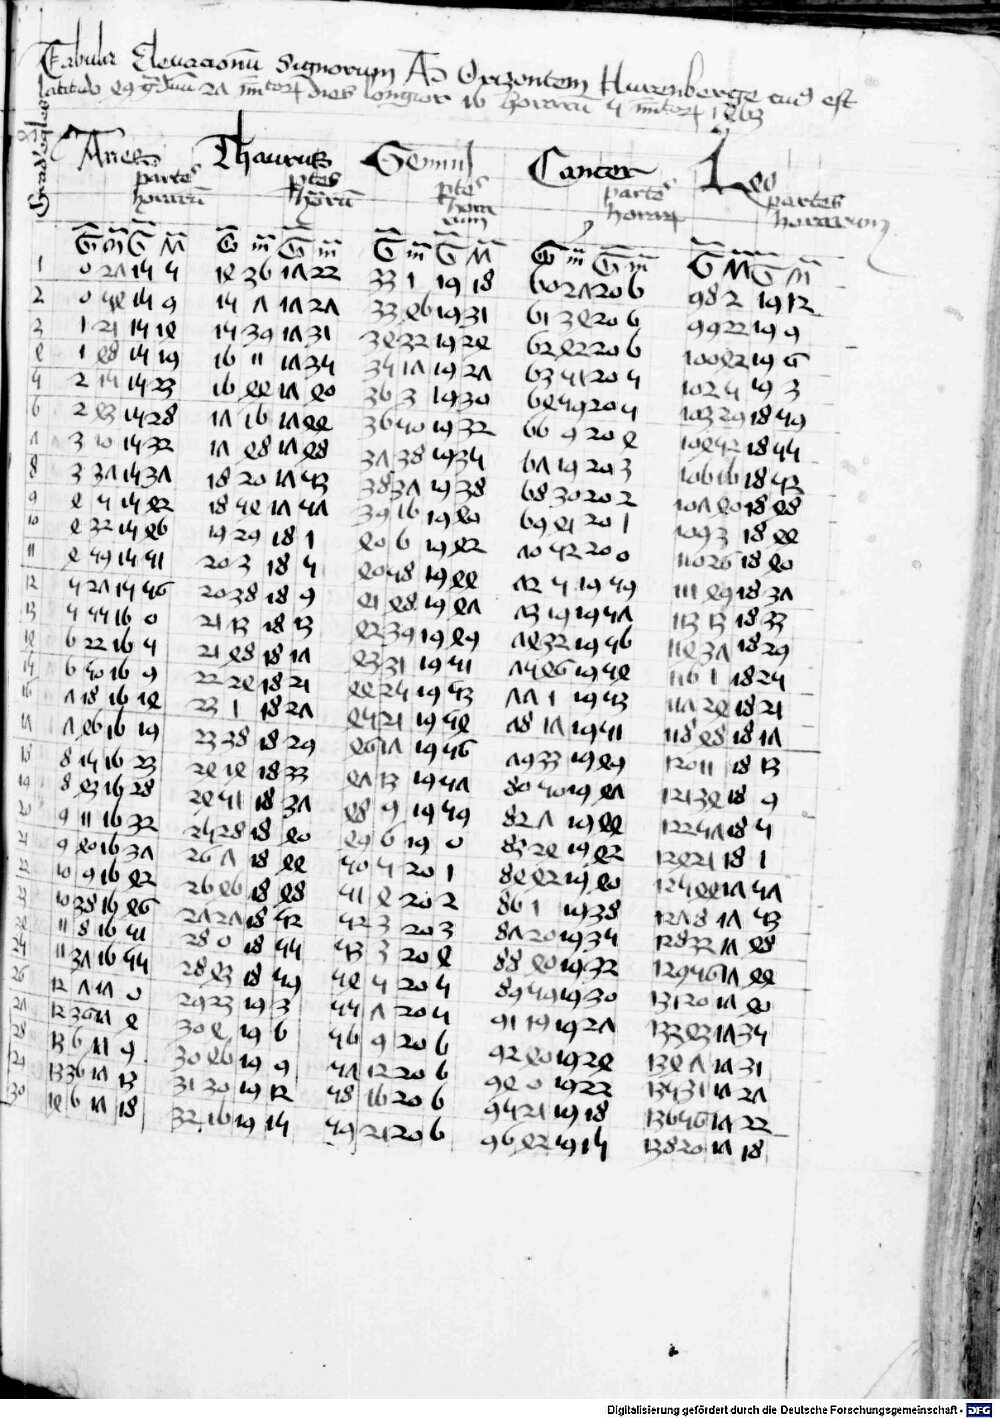 Tabula Elevacionum Signorum Ad Orizontem Nurenberge cuius est
latitudo 49 graduum 27 minutorum dies longior 16 horarum 5 minutorum 1463
Gradus equales
Aries Thaurus Gemini Cancer Leo
partes ptes ptes partes partes
horarum horarum horarum horarum horarum
G m G M G m G m G m G M G m G m G M G M
1 0 27 15 5 14 36 17 22 33 1 19 18 60 27 20 6 98 2 19 12
2 0 54 15 9 15 7 17 27 33 46 19 21 61 34 20 6 99 22 19 9
3 1 21 15 14 15 39 17 31 34 32 19 24 62 42 20 6 100 42 19 6
4 1 48 15 19 16 11 17 35 35 17 19 27 63 51 20 5 102 5 19 3
5 2 15 15 23 16 44 17 40 36 3 19 30 64 59 20 5 103 29 18 59
6 2 43 15 28 17 16 17 44 36 50 19 32 66 9 20 4 104 52 18 55
7 3 10 15 32 17 48 17 48 37 38 19 35 67 19 20 3 106 16 18 52
8 3 37 15 37 18 20 17 53 38 27 19 38 68 30 20 2 107 40 18 48
9 4 5 15 42 18 54 17 57 39 16 19 40 69 41 20 1 109 3 18 44
10 4 32 15 46 19 29 18 1 40 6 19 42 70 52 20 0 110 26 18 40
11 4 59 15 51 20 3 18 5 40 58 19 44 72 5 19 59 111 49 18 37
12 5 27 15 56 20 38 18 9 41 48 19 47 73 19 19 57 113 13 18 33
13 5 55 16 0 21 13 18 13 42 39 19 49 74 32 19 56 114 37 18 29
14 6 22 16 5 21 48 18 17 43 31 19 51 75 46 19 54 116 1 18 25
15 6 50 16 9 22 24 18 21 44 25 19 53 77 1 19 53 117 24 18 21
16 7 18 16 14 23 1 18 27 45 21 19 54 78 17 19 51 118 48 18 17
17 7 46 16 19 23 38 18 29 46 17 19 56 79 33 19 49 120 11 18 13
18 8 15 16 23 24 14 18 33 47 13 19 57 80 50 19 47 121 34 18 9
19 8 43 16 28 24 51 18 37 48 9 19 59 82 7 19 44 122 57 18 5
20 9 11 16 32 25 28 18 40 49 6 19 0 83 24 19 42 124 21 18 1
21 9 40 16 37 26 7 18 44 50 5 20 1 84 42 19 40 125 44 17 57
22 10 9 16 42 26 46 18 48 51 4 20 2 86 1 19 38 127 8 17 53
23 10 38 16 46 27 27 18 52 52 3 20 3 87 20 19 35 128 32 17 48
24 11 8 16 51 28 0 18 55 53 3 20 4 88 40 19 32 129 56 17 44
25 11 37 16 55 28 43 18 59 54 5 20 5 89 59 19 30 131 20 17 40
26 12 7 17 0 29 23 19 3 55 7 20 5 91 19 19 27 132 43 17 35
27 12 36 17 4 30 4 19 6 56 9 20 6 92 40 19 24 134 7 17 31
28 13 6 17 9 30 46 19 9 57 12 20 6 94 0 19 22 135 31 17 27
29 13 36 17 13 31 30 19 12 58 16 20 6 95 21 19 18 136 56 17 22
30 14 6 17 18 32 16 19 15 59 21 20 6 96 42 19 15 138 20 17 18
Digitalisierung gefördert durch die Deutsche Forschungsgemeinschaft - DFG